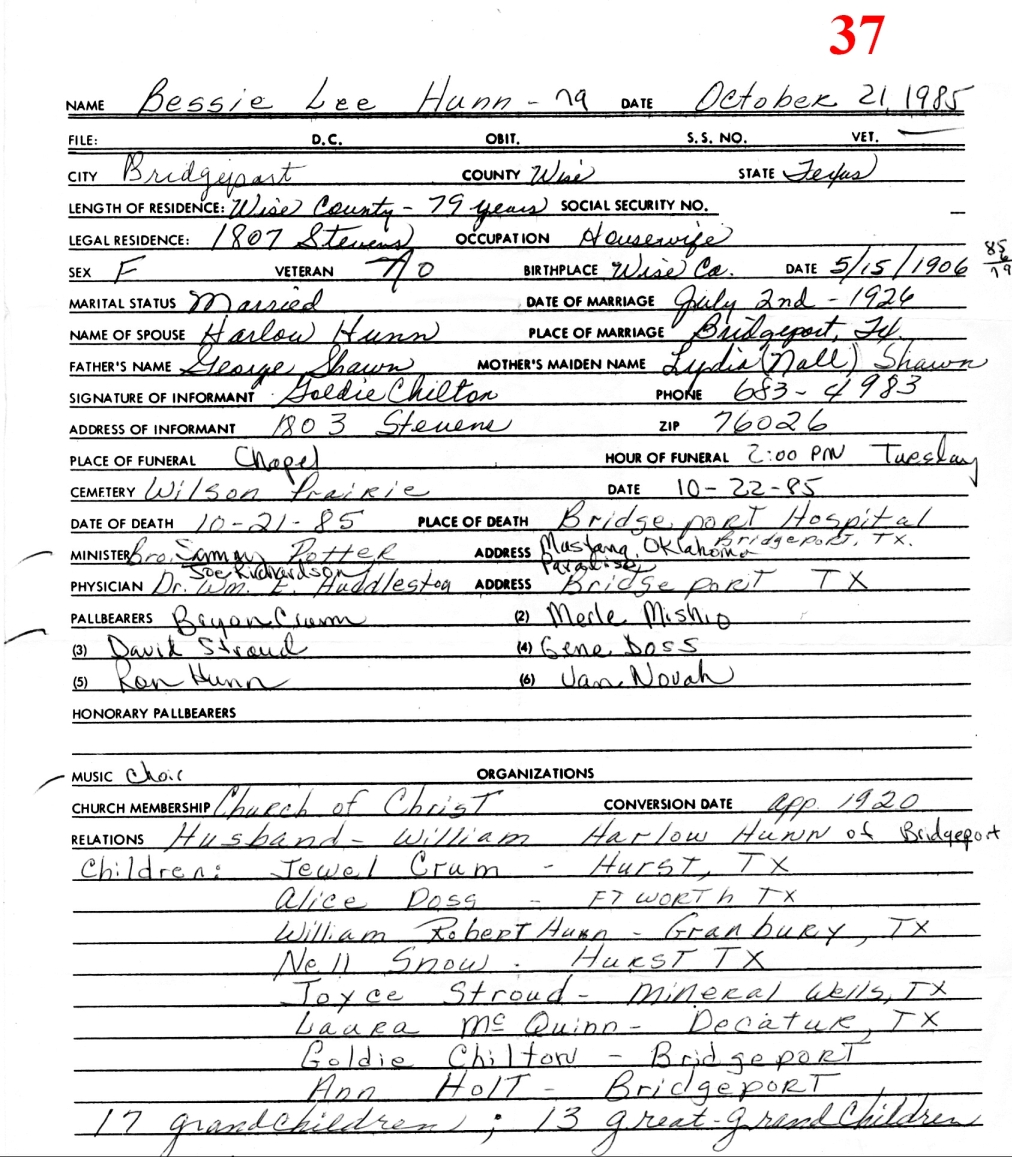 37
NAME Bessie Lee Hunn - 79 DATE October 21, 1985
FILE: D.C. OBIT. S.S. NO. VET. —
CITY Bridgeport COUNTY Wise STATE Texas
LENGTH OF RESIDENCE: Wise County - 79 years SOCIAL SECURITY NO. –
LEGAL RESIDENCE: 1807 Stevens OCCUPATION Housewife
SEX F VETERAN No BIRTHPLACE Wise Co. DATE 5/15/1906 85 6 79
MARITAL STATUS Married DATE OF MARRIAGE July 2nd - 1926
NAME OF SPOUSE Harlow Hunn PLACE OF MARRIAGE Bridgeport, Tx.
FATHER'S NAME George Shawn MOTHER'S MAIDEN NAME Lydia (Nall) Shawn
SIGNATURE OF INFORMANT Goldie Chilton PHONE 683-4983
ADDRESS OF INFORMANT 1803 Stevens ZIP 76026
PLACE OF FUNERAL Chapel HOUR OF FUNERAL 2:00 PM Tuesday
CEMETERY Wilson Prairie DATE 10-22-85
DATE OF DEATH 10-21-85 PLACE OF DEATH Bridgeport Hospital
Bridgeport, TX.
MINISTER Bro. Sammy Potter ADDRESS Mustang, Oklahoma
Joe Richardson Paradise
PHYSICIAN Dr. Wm. E. Huddleston ADDRESS Bridgeport TX
PALLBEARERS Bryan Crum (2) Merle Mishio
(3) David Stroud (4) Gene Doss
(5) Ron Hunn (6) Van Novah
HONORARY PALLBEARERS
MUSIC Choir ORGANIZATIONS
CHURCH MEMBERSHIP Church of Christ CONVERSION DATE app. 1920
RELATIONS Husband - William Harlow Hunn of Bridgeport
Children: Jewel Crum - Hurst, TX
Alice Doss - FT WORTH TX
William Robert Hunn - Granbury, TX
Nell Snow - Hurst TX
Joyce Stroud - Mineral Wells, TX
Laura McQuinn - Decatur, TX
Goldie Chilton - Bridgeport
Ann Holt - Bridgeport
17 grandchildren; 13 great-grandchildren